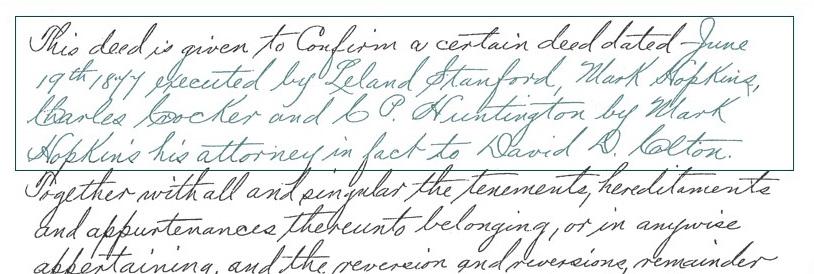 This deed is given to Confirm a certain deed dated June
19th 1877 executed by Leland Stanford, Mark Hopkins,
Charles Crocker and C P. Huntington by Mark
Hopkins his attorney in fact to David D. Colton.
Together with all and singular the tenements, hereditaments
and appurtenances thereunto belonging, or in anywise
appertaining, and the reversion and reversions, remainder